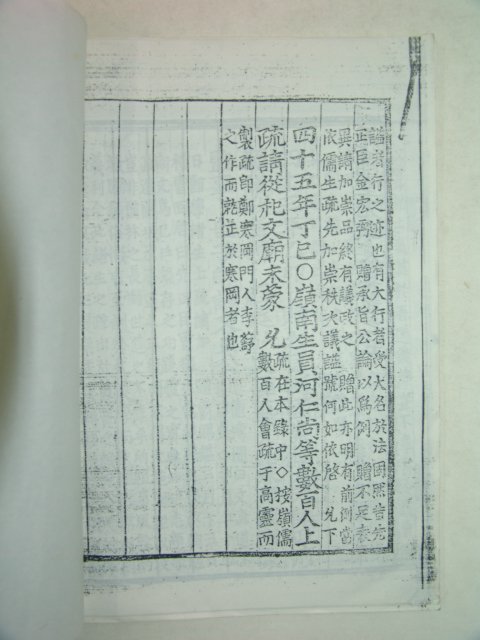 謚者行之迹也有大行者受大名於法固然昔先
正臣金宏弼 贈承旨公論以爲例 贈不足
異請加崇品終有議政之 贈此亦明有前例當
依儒生疏先加崇秩次議謚號何如依啓 允下
四十五年丁巳○嶺南生員河仁尚等數百人上
疏請從祀文廟未蒙 允
疏在本錄中○按嶺儒
數百人會疏于高靈而
製疏即鄭寒岡門人李
之作而就正於寒岡者也